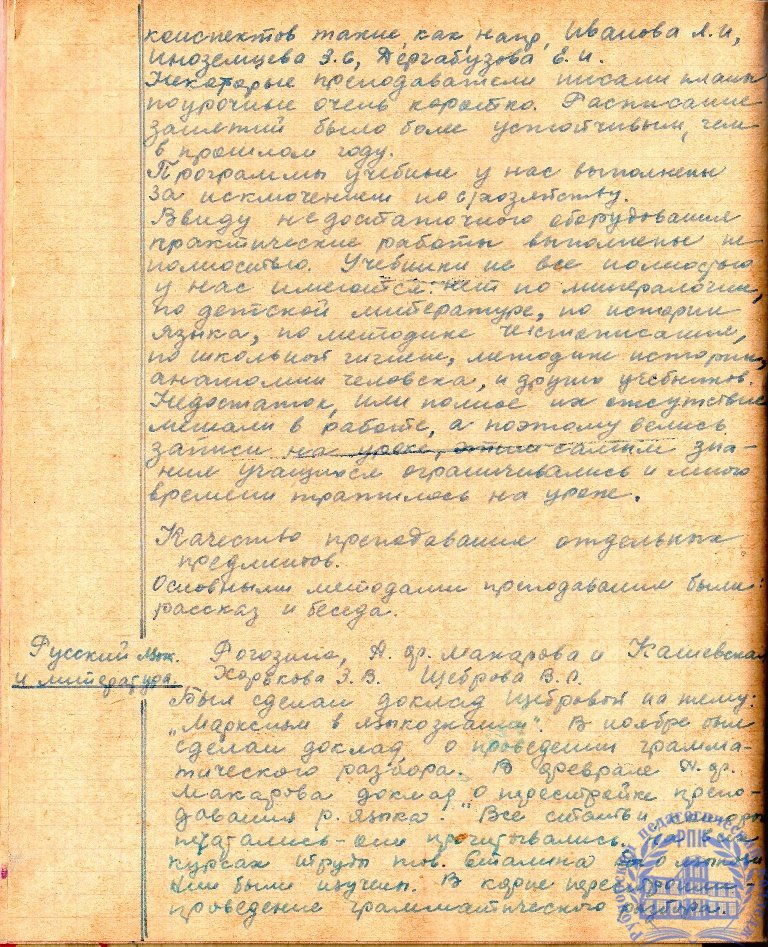 конспектов такие как напр, Иванова Л.И,
Иноземцева З.С, Дергабузова Е.И.
Некоторые преподаватели писали планы
поурочные очень коротко. Расписание
занятий было более устойчивым, чем
в прошлом году.
Программы учебные у нас выполнены
за исключением по с/хозяйству.
Ввиду недостаточного оборудования
практические работы выполнены не
полностью. Учебники не все полностью
у нас имеются: нет по минералогии,
по детской литературе, по истории
языка, по методике чистописания,
по школьной гигиене, методики истории,
анатомии человека, и других учебников.
Недостаток, или полное их отсутствие
мешали в работе, а поэтому велись
записи на уроке, этим самым зна-
ния учащихся ограничивались и много
времени тратилось на уроке.
Качество преподавания отдельных
предметов.
Основными методами преподавания были:
рассказ и беседа.
Русский яз. Рогозина, А. Ф. Макарова и Кашевская
и литература. Хорькова З.В. Щеброва В.
Был сделан доклад Щебровой на тему:
"Марксизм в языкознании". В ноябре был
сделан доклад о проведении грамма-
тического разбора. В феврале
Макарова доклад "о перестройке препо-
давания р. языка". Все статьи
печатались - они прочитывались,
курсах труды тов. Сталина
были изучены. В корне
проведение грамматического разбора.
педагогический
РПК